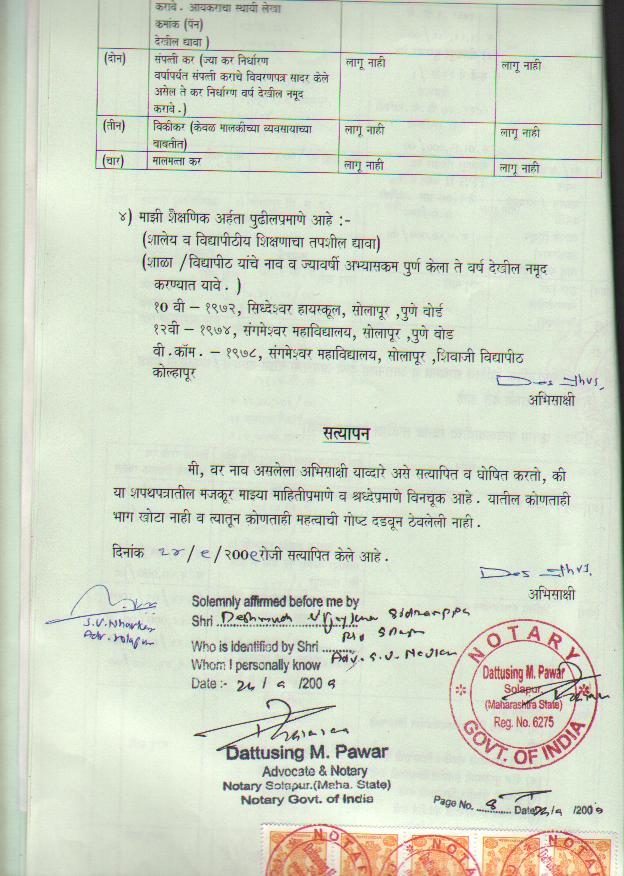 करावे . आयकराचा स्थायी लेखा
कमांक (पॅन)
देखील द्यावा )
(दोन) संपत्ती कर (ज्या कर निर्धारण लागू नाही लागू नाही
वर्षापर्यंत संपत्ती कराचे विवरणपत्र सादर केले
असेल ते कर निर्धारण वर्ष देखील नमूद
करावे .)
(तीन) विकीकर (केवळ मालकीच्या व्यवसायाच्या लागू नाही लागू नाही
बाबतीत)
(चार) मालमत्ता कर लागू नाही लागू नाही
४) माझी शैक्षणिक अर्हता पुढीलप्रमाणे आहे :-
(शालेय व विद्यापीठीय शिक्षणाचा तपशील द्यावा)
(शाळा /विद्यापीठ यांचे नाव व ज्यावर्षी अभ्यासकम पुर्ण केला ते वर्ष देखील नमूद
करण्यात यावे . )
१0 वी – १९७२, सिध्देश्वर हायस्कूल, सोलापूर ,पुणे बोर्ड
१२वी – १९७४, संगमेश्वर महाविद्यालय, सोलापूर ,पुणे बोड
बी .कॉम. – १९७८, संगमेश्वर महाविद्यालय, सोलापूर ,शिवाजी विद्यापीठ
कोल्हापूर
अभिसाक्षी
सत्यापन
मी, वर नाव असलेला अभिसाक्षी याव्दारे असे सत्यापित व घोषित करतो, की
या शपथपत्रातील मजकूर माझ्या माहितीप्रमाणे व श्रध्देप्रमाणे बिनचूक आहे . यातील कोणताही
भाग खोटा नाही व त्यातून कोणताही महत्वाची गोष्ट दडवून ठेवलेली नाही .
दिनांक २४/९/२00९रोजी सत्यापित केले आहे .
अभिसाक्षी
Solemnly affirmed before me by
Shri Deshmukh Vijaykumar Sidramappa
Who is identified by Shri
Whom I personally know Adv. S.V.
Date :- 24/9/2009
S.V.
Adv. Solapur
NOTARY
Dattusing M. Pawar
Solapur.
(Maharashtra State)
Reg. No. 6275
GOVT. OF INDIA
Dattusing M. Pawar
Advocate & Notary
Notary Solapur.(Maha. State)
Notary Govt. of India
Page No. 8 Date 24/9/2009
NOTARY NOTARY NOTARY
Dattusing M. Pawar